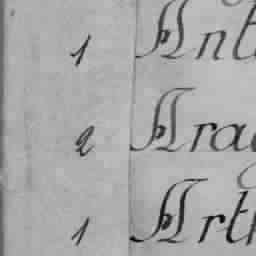 1 Ant
2 Arag
1 Art